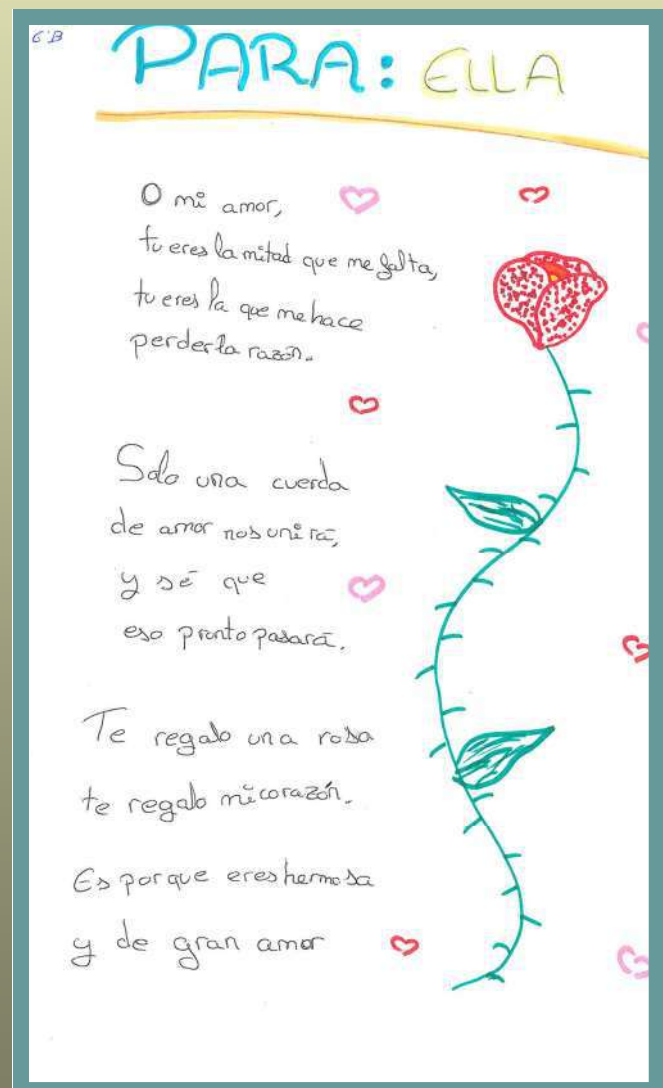 6ºB
PARA: ELLA
O mi amor,
tu eres la mitad que me falta,
tu eres la que me hace
perder la razón.
Solo una cuerda
de amor nos unirá,
y sé que
eso pronto pasará.
Te regalo una rosa
te regalo mi corazón.
Es porque eres hermosa
y de gran amor